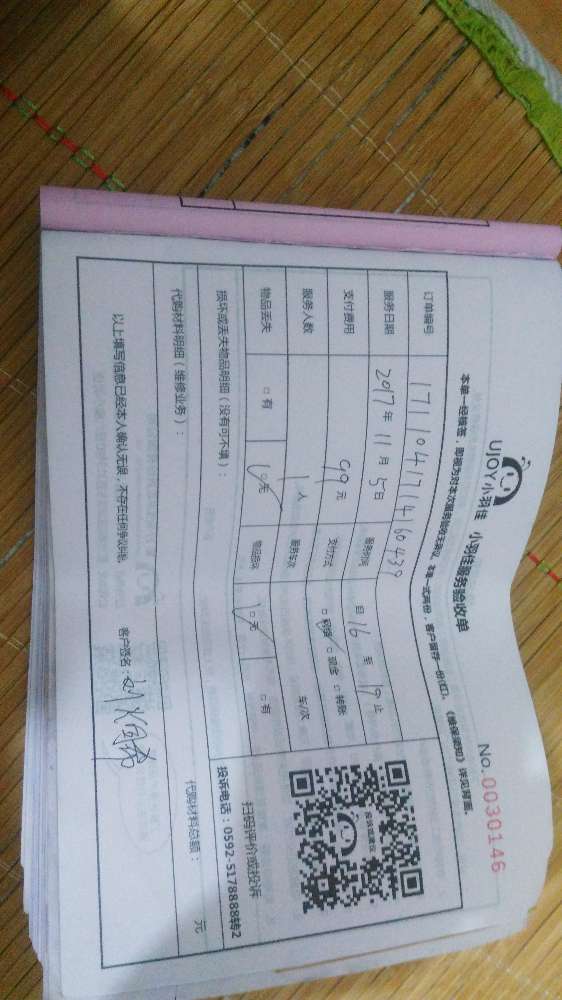 UJOY小羽佳 小羽佳服务验收单
No.0030146
本单一经签签,即视为对本次服务验收无异议。本单一式两份,客户留存一份(红)。《维保须知》详见背面。
订单编号 1711041714160439
服务日期 2017年11月5日 服务时间 自16至19止
支付费用 99元 支付方式 □ 现金 □ 转账
服务人数 1人 服务车次 车/次
物品丢失 □ 有 □ 无 物品损坏 □ 无 □ 有
损坏或丢失物品明细(没有可不填):
投诉建议
扫码评价或投诉
投诉电话:0592-5178888转2
代购材料明细(维修业务): 代购材料总额: 元
以上填写信息已经本人确认无误,不存在任何争议纠纷。 客户签名: